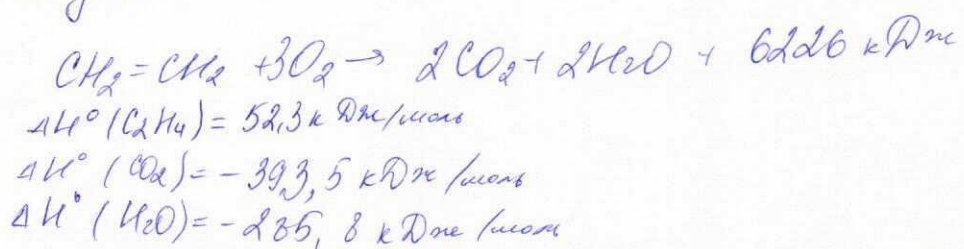 CH₂=CH₂ + 3O₂ → 2CO₂ + 2H₂O + 6226 кДж
ΔH° (C₂H₄) = 52,3 кДж/моль
ΔH° (CO₂) = -393,5 кДж/моль
ΔH° (H₂O) = -285,8 кДж/моль